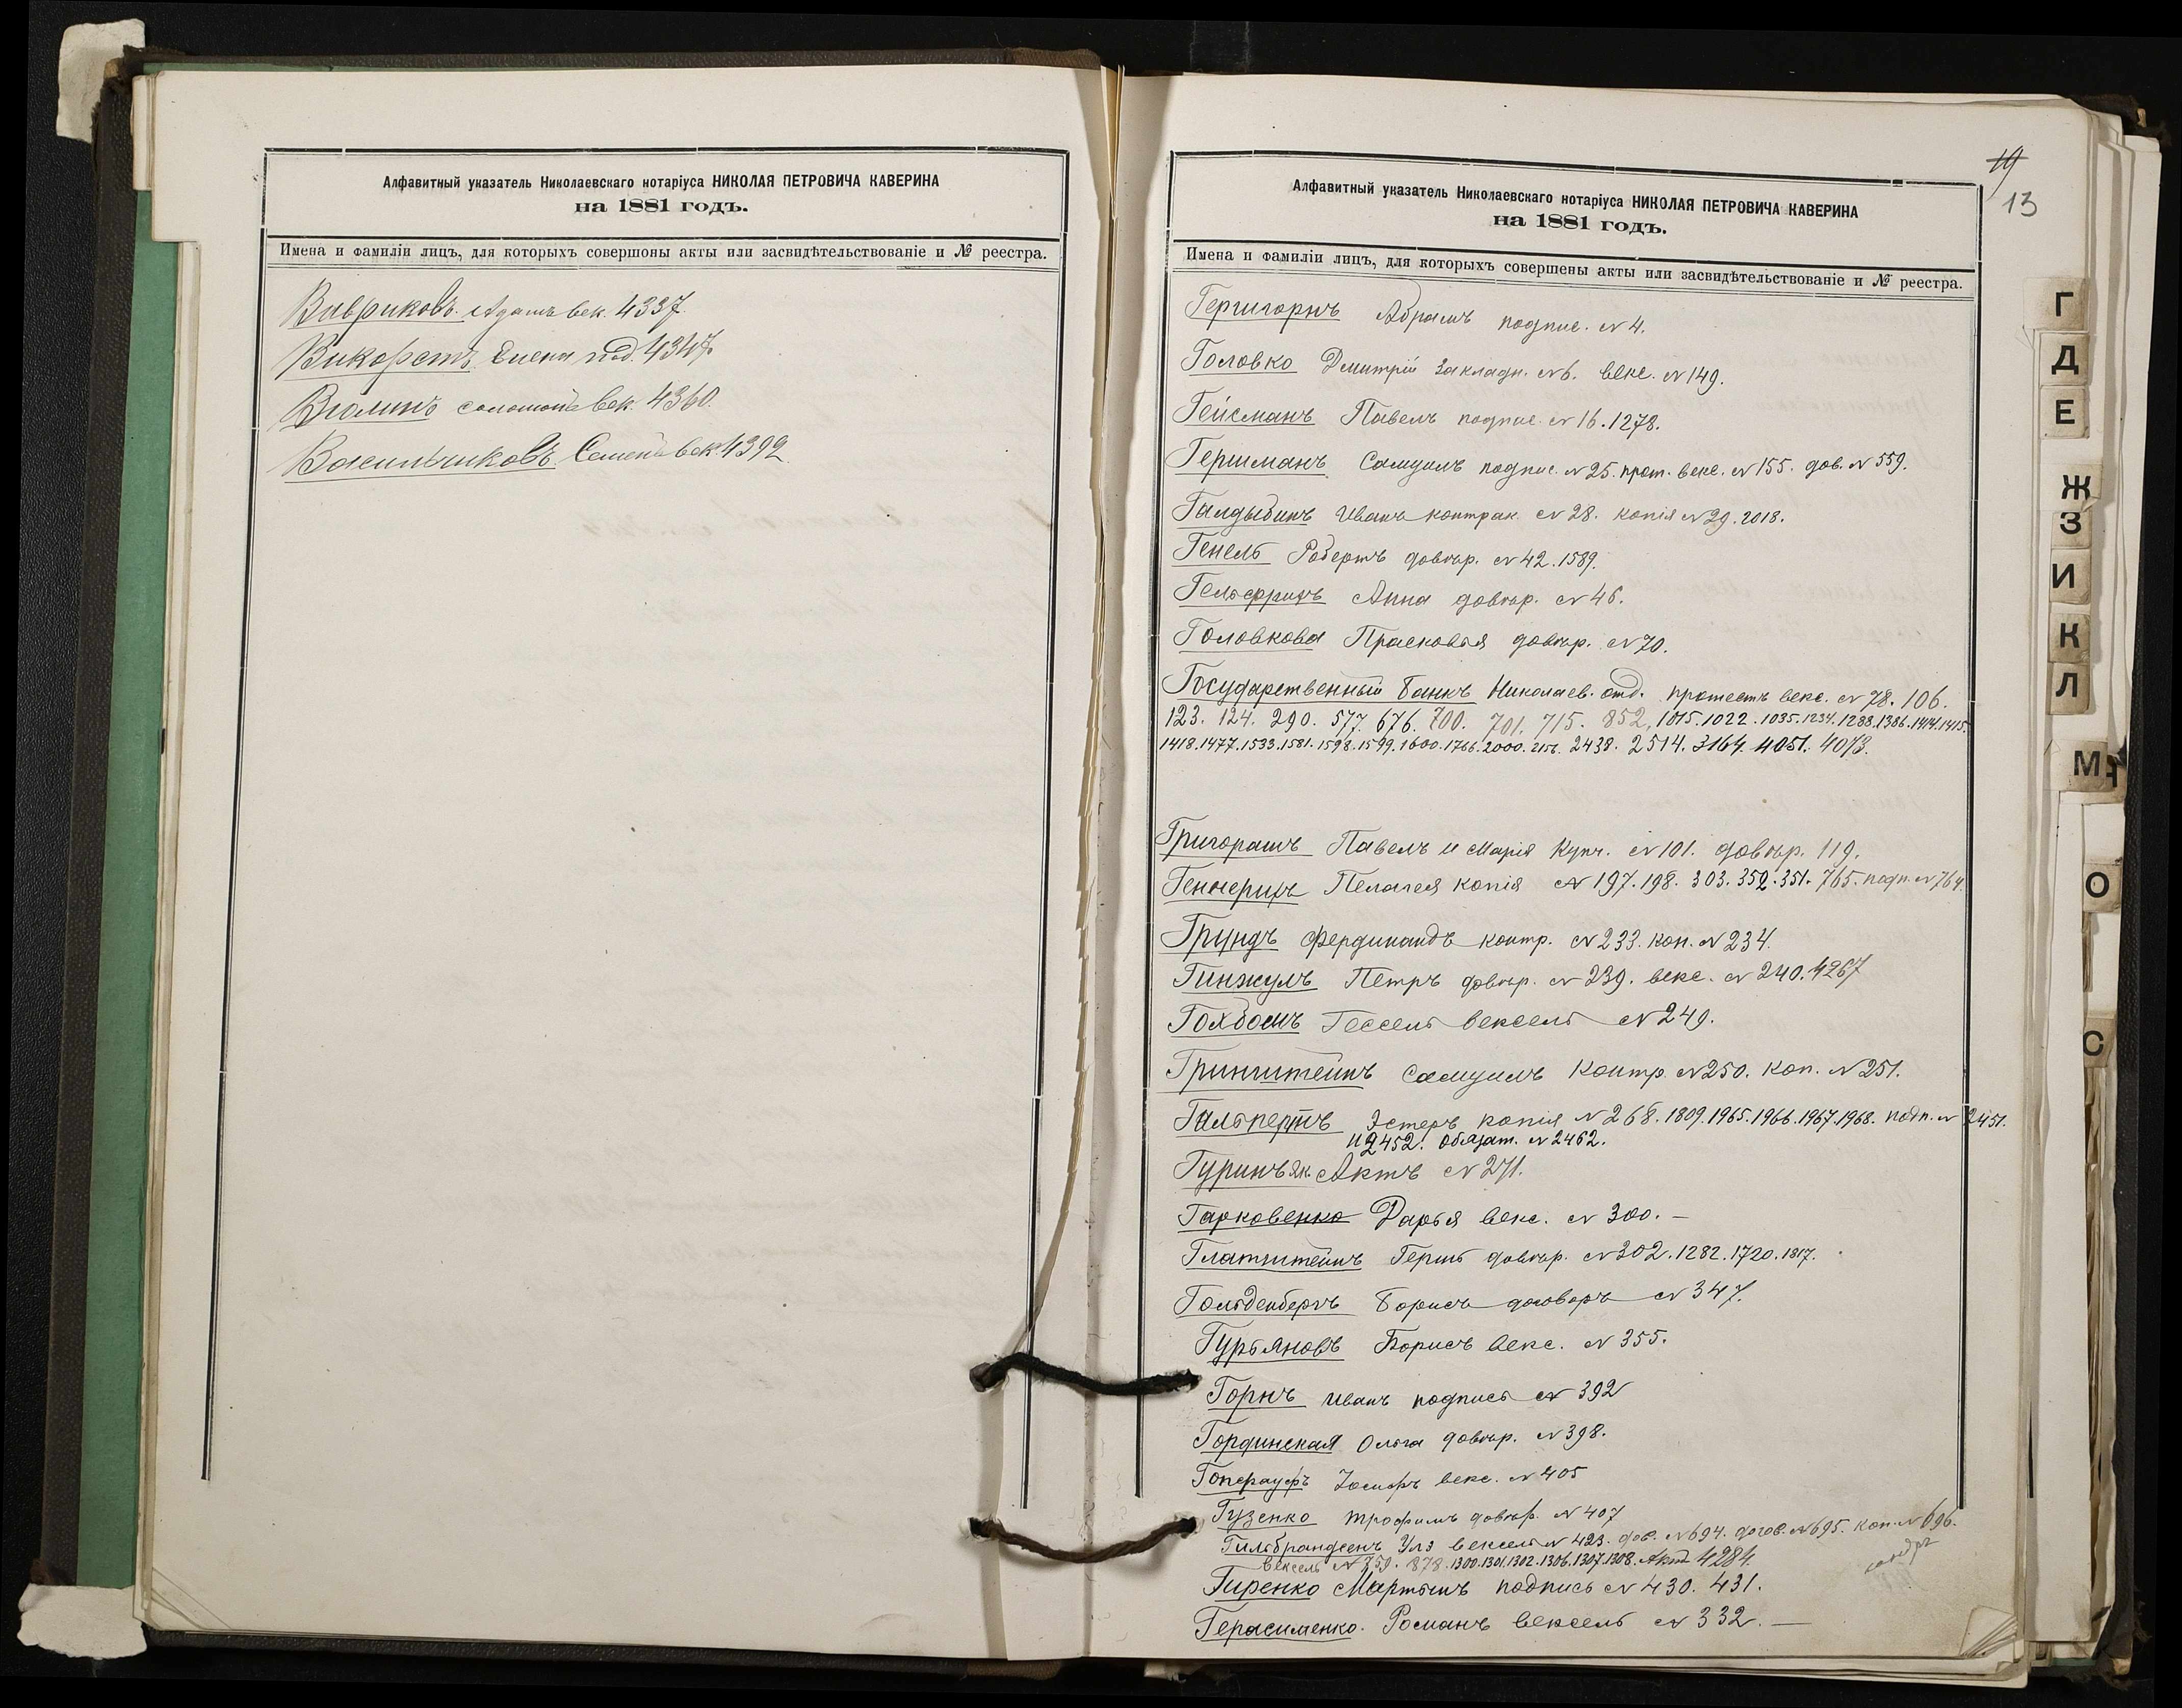 Алфавитный указатель Николаевскаго нотаріуса НИКОЛАЯ ПЕТРОВИЧА КАВЕРИНА
на 1881 годъ.
Имена и фамиліи лицъ, для которыхъ совершоны акты или засвидѣтельствованіе и № реестра.
Вавриковъ Адамъ век. 4337.
Викорстъ Елена под. 4347.
Вюлинъ Соломонъ век. 4360.
Васильчиковъ Семенъ век. 4392
19
13
Алфавитный указатель Николаевскаго нотаріуса НИКОЛАЯ ПЕТРОВИЧА КАВЕРИНА
на 1881 годъ.
Имена и фамиліи лицъ, для которыхъ совершены акты или засвидѣтельствованіе и № реестра.
Гершгорнъ Абрамъ подпис. № 4.
Головко Дмитрій закладн. № 6. векс. № 149.
Гейсманъ Павелъ подпис. № 16. 1278.
Гершманъ Самуилъ подпис. № 25. прот. векс. № 155. дов. № 559.
Галдыбинъ Иванъ контрак. № 28. копія № 29. 2018.
Генель Робертъ довѣр. № 42. 1589.
Гельфрихъ Анна довѣр. № 46.
Головкова Прасковья довѣр. № 70.
Государственный Банкъ Николаев. отд. протестъ векс. № 78. 106.
123. 124. 290. 577. 676. 700. 701. 715. 852. 1015. 1022. 1035. 1234. 1288. 1386. 1414. 1415.
1418. 1477. 1533. 1581. 1598. 1599. 1600. 1766. 2000. 2438. 2514. 3164. 4051. 4073.
Григорашъ Павелъ и Марія купч. № 101. довѣр. 119.
Геннерихъ Пелагея копія № 197. 198. 303. 352. 351. 765. подп. № 764.
Грундъ Фердинандъ контр. № 233. коп. № 234.
Гинжулъ Петръ довѣр. № 239. векс. № 240. 4267
Гохбомъ Гессель вексель № 249.
Гринштейнъ Самуилъ контр. № 250. коп. № 251.
Гальпернъ Эстеръ копія № 268. 1809. 1965. 1966. 1967. 1968. подп. № 2451.
и 2452. обязат. № 2462.
Гуринъ Як. Актъ № 271.
Гарковенко Дарья векс. № 300. —
Глатштейнъ Гершъ довѣр. № 302. 1282. 1720. 1817.
Гольденбергъ Борисъ договоръ № 347.
Гурьяновъ Борисъ векс. № 355.
Горнъ Иванъ подпись № 392
Гординская Ольга довѣр. № 398.
Іосифъ векс. № 405
Гузенко Трофимъ довѣр. № 407
Гильбрандсенъ Улэ вексель № 423. дов. № 694. догов. № 695. коп. № 696.
вексель № 759. 878. 1300. 1301. 1302. 1306. 1307. 1308. Актъ 4284.
Гиренко Мартынъ подпись № 430. 431.
Герасименко. Романъ вексель № 332. —
Г
Д
Е
Ж
З
И
К
Л
М
О
С